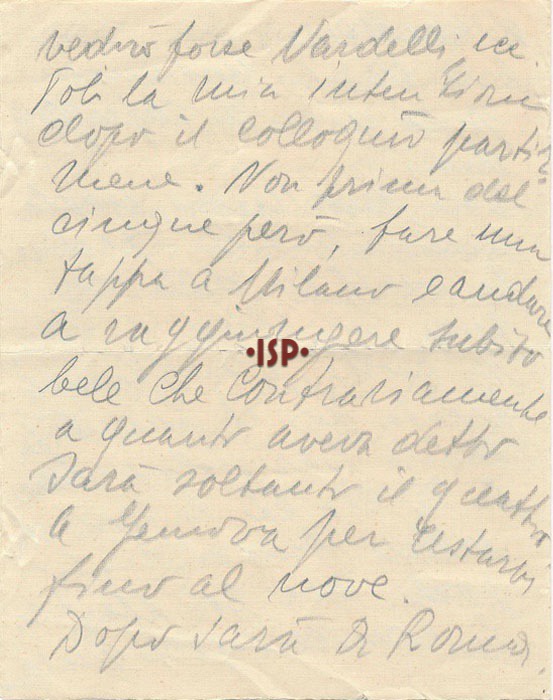 vedrò forse Nardelli ecc.
la mia intenzione
dopo il colloquio partir
mene. Non prima del
cinque però, fare una
tappa a Milano e andare
a raggiungere subito
·ISP·
bele che contrariamente
a quanto aveva detto
sarà soltanto il quattro
a Genova per restarvi
fino al nove.
Dopo sarà a Roma.